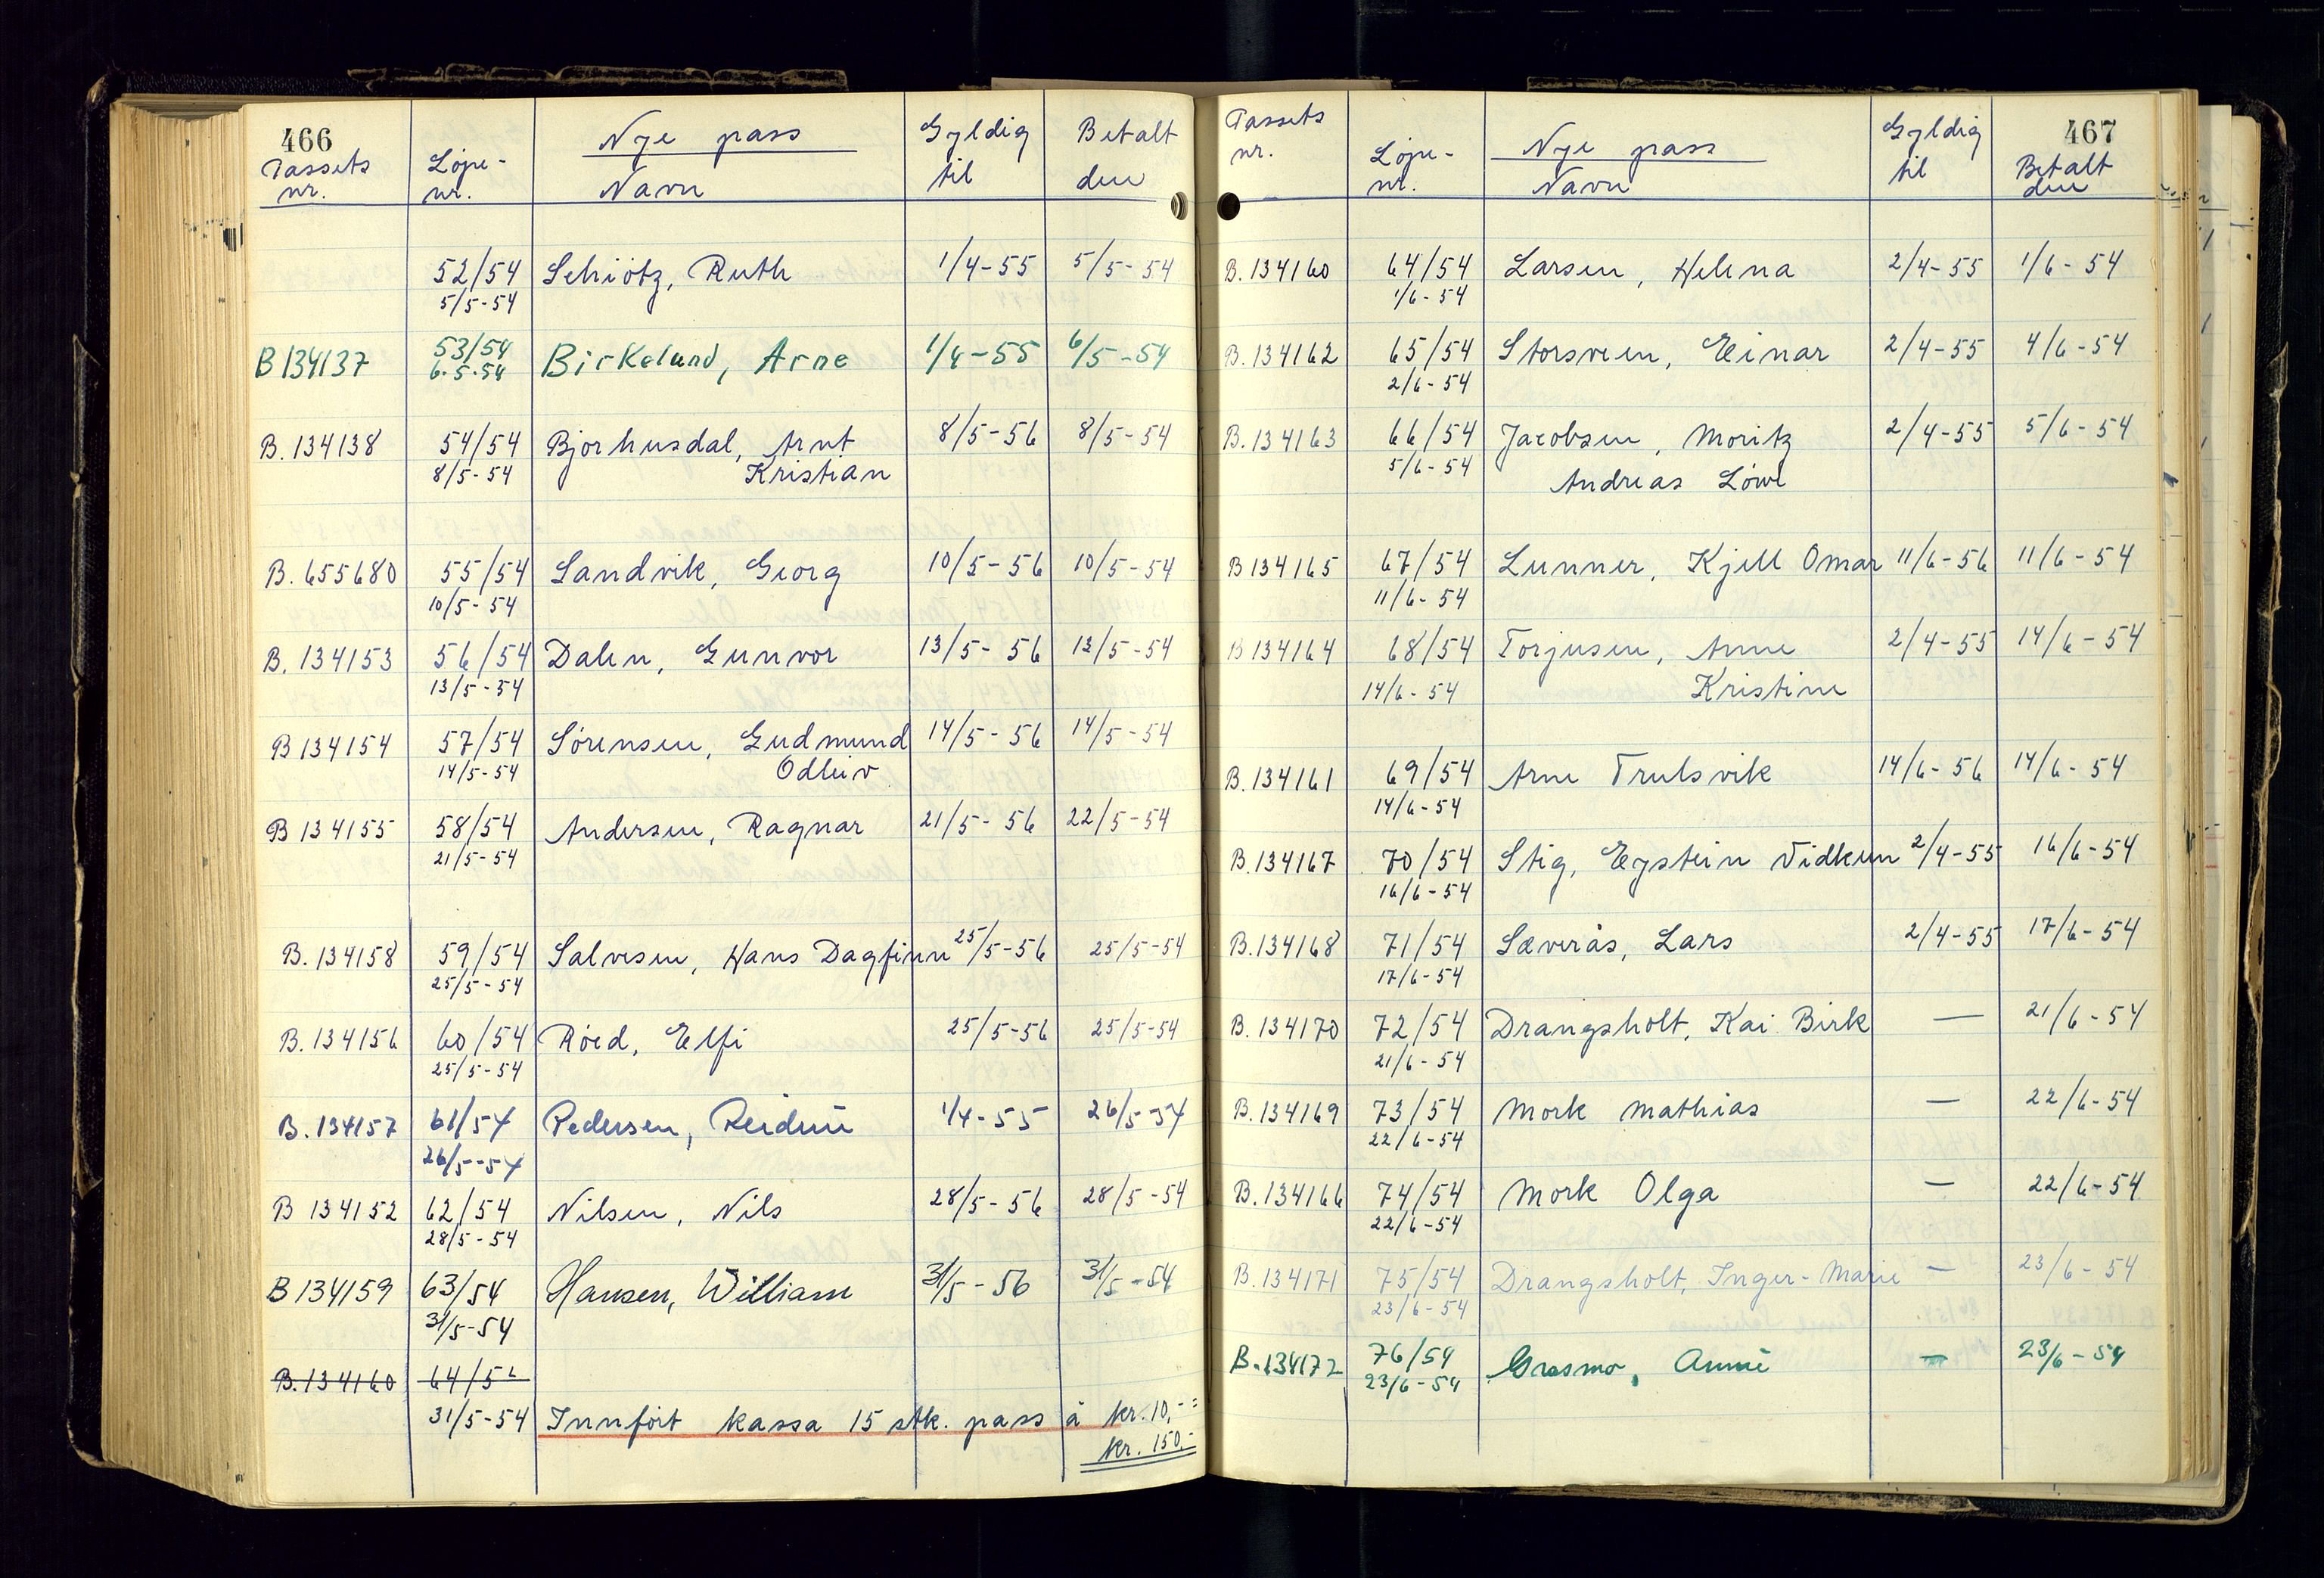 466
Passets nr. Løpe-nr. Nye pass Navn Gyldig til Betalt den
52/54 Schiötz, Ruth 1/4-55 5/5-54
5/5-54
B 134137 53/54 Birkeland, Arne 1/4-55 6/5-54
6.5.54
B. 134138 54/54 Bjorhusdal, Arnt 8/5-56 8/5-54
8/5-54 Kristian
B. 655680 55/54 Sandvik, Georg 10/5-56 10/5-54
10/5-54
B. 134153 56/54 Dalen, Gunvor 13/5-56 12/5-54
13/5-54
B 134154 57/54 Sörensen, Gudmund 14/5-56 14/5-54
14/5-54 Odleiv
B 134155 58/54 Andersen, Ragnar 21/5-56 22/5-54
21/5-54
B. 134158 59/54 Salvesen, Hans Dagfinn 25/5-56 25/5-54
25/5-54
B. 134156 60/54 Röed, Elfi 25/5-56 25/5-54
25/5-54
B. 134157 61/54 Pedersen, Reidun 1/4-55 26/5-54
26/5-54
B 134152 62/54 Nilsen, Nils 28/5-56 28/5-54
28/5-54
B 134159 63/54 Hansen, William 31/5-56 31/5-54
31/5-54
B. 134160 64/54
31/5-54 Innført kassa 15 stk. pass à kr. 10,- =
kr. 150,-
467
Passets nr. Løpe-nr. Nye pass Navn Gyldig til Betalt den
B. 134160 64/54 Larsen, Helena 2/4-55 1/6-54
1/6-54
B. 134162 65/54 Storsveen, Einar 2/4-55 4/6-54
2/6-54
B. 134163 66/54 Jacobsen, Moritz 2/4-55 5/6-54
5/6-54 Andreas Löwe
B 134165 67/54 Lunner, Kjell Omar 11/6-56 11/6-54
11/6-54
B 134164 68/54 Torjusen, Anne 2/4-55 14/6-54
14/6-54 Kristine
B. 134161 69/54 Arne Trulsvik 14/6-56 14/6-54
14/6-54
B. 134167 70/54 Stig, Eystein Vidkun 2/4-55 16/6-54
16/6-54
B. 134168 71/54 Sæverås, Lars 2/4-55 17/6-54
17/6-54
B. 134170 72/54 Drangsholt, Kai Birk — 21/6-54
21/6-54
B. 134169 73/54 Mork Mathias — 22/6-54
22/6-54
B. 134166 74/54 Mork Olga — 22/6-54
22/6-54
B. 134171 75/54 Drangsholt, Inger-Marie — 23/6-54
23/6-54
B. 134172 76/54 Grosmo, Annie — 23/6-54
23/6-54